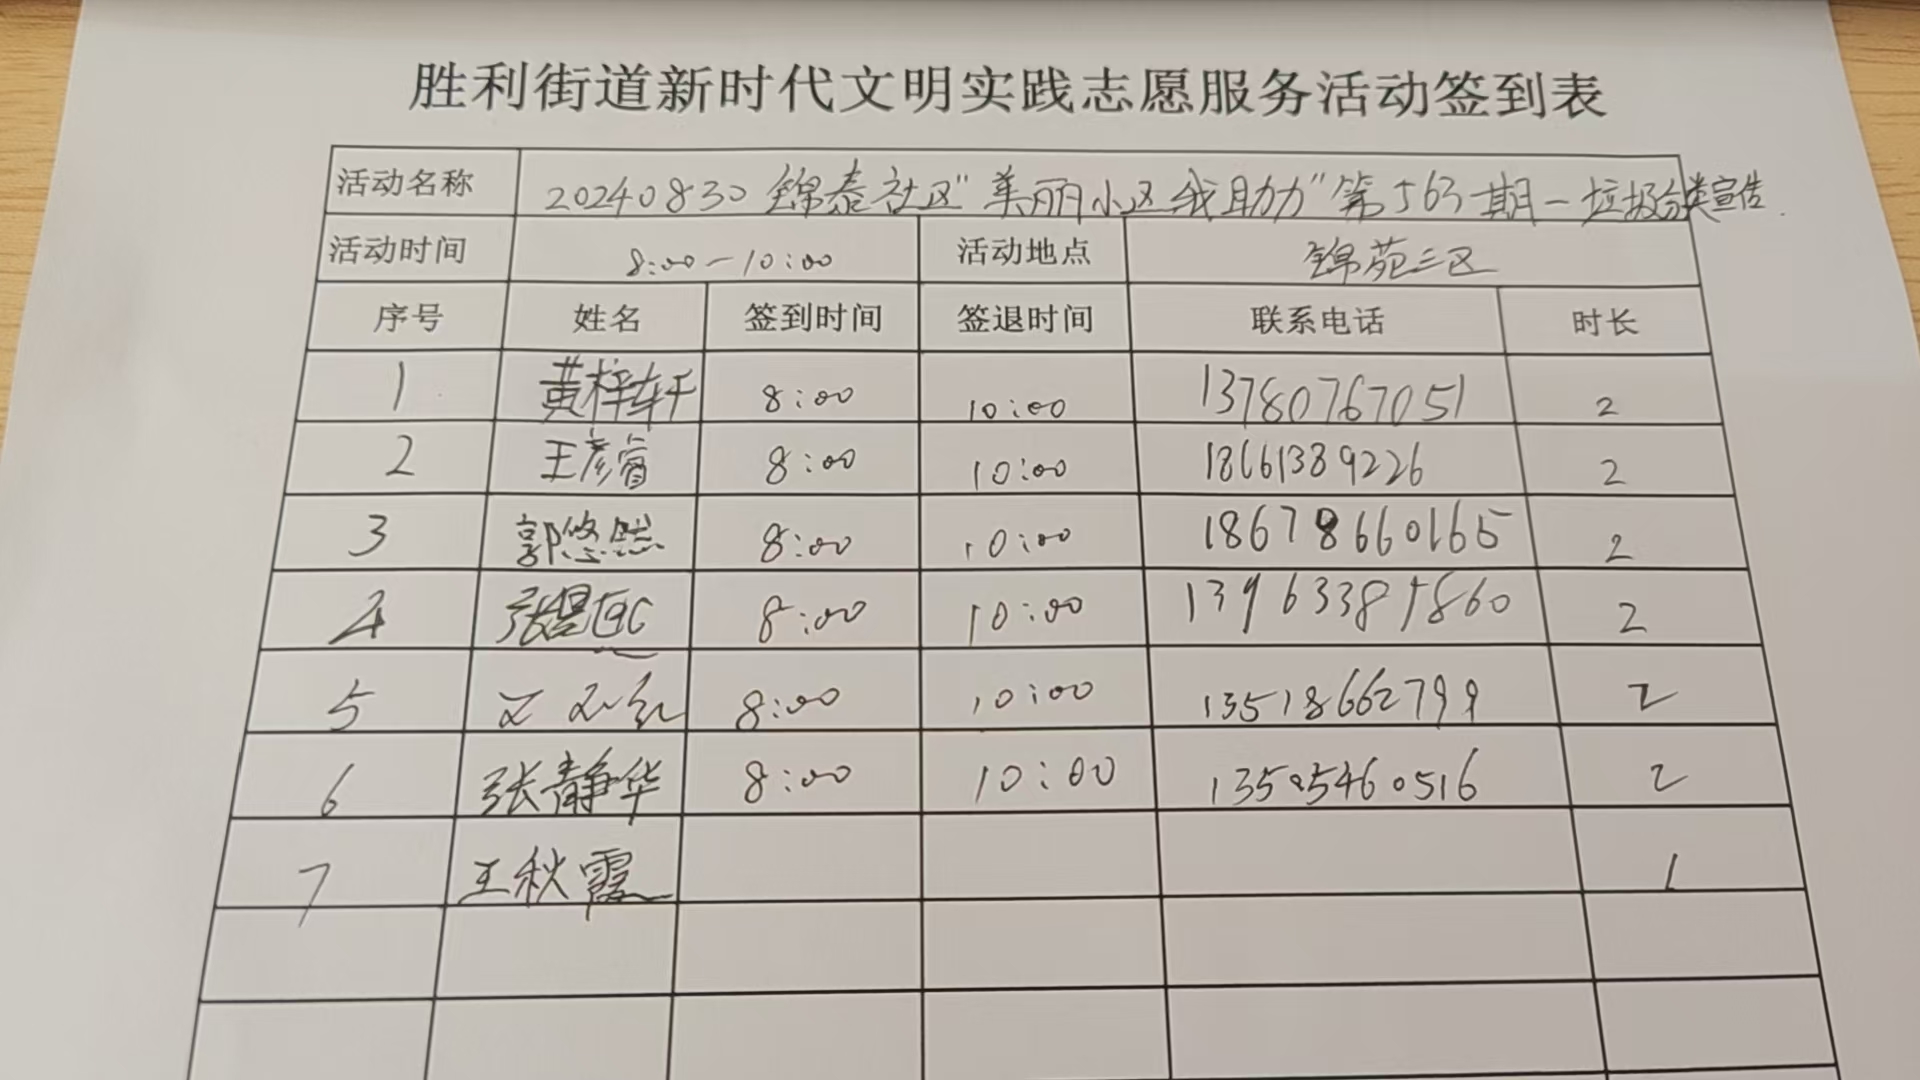 胜利街道新时代文明实践志愿服务活动签到表
活动名称 20240830锦泰社区"美丽小区我助力"第563期—垃圾分类宣传
活动时间 8:00—10:00 活动地点 锦苑三区
序号 姓名 签到时间 签退时间 联系电话 时长
1 黄梓轩 8:00 10:00 13780767051 2
2 王彦睿 8:00 10:00 18661389226 2
3 郭悠然 8:00 10:00 18678660165 2
4 8:00 10:00 2
5 8:00 10:00 13518662799 2
6 张静华 8:00 10:00 13505460516 2
7 王秋霞 1